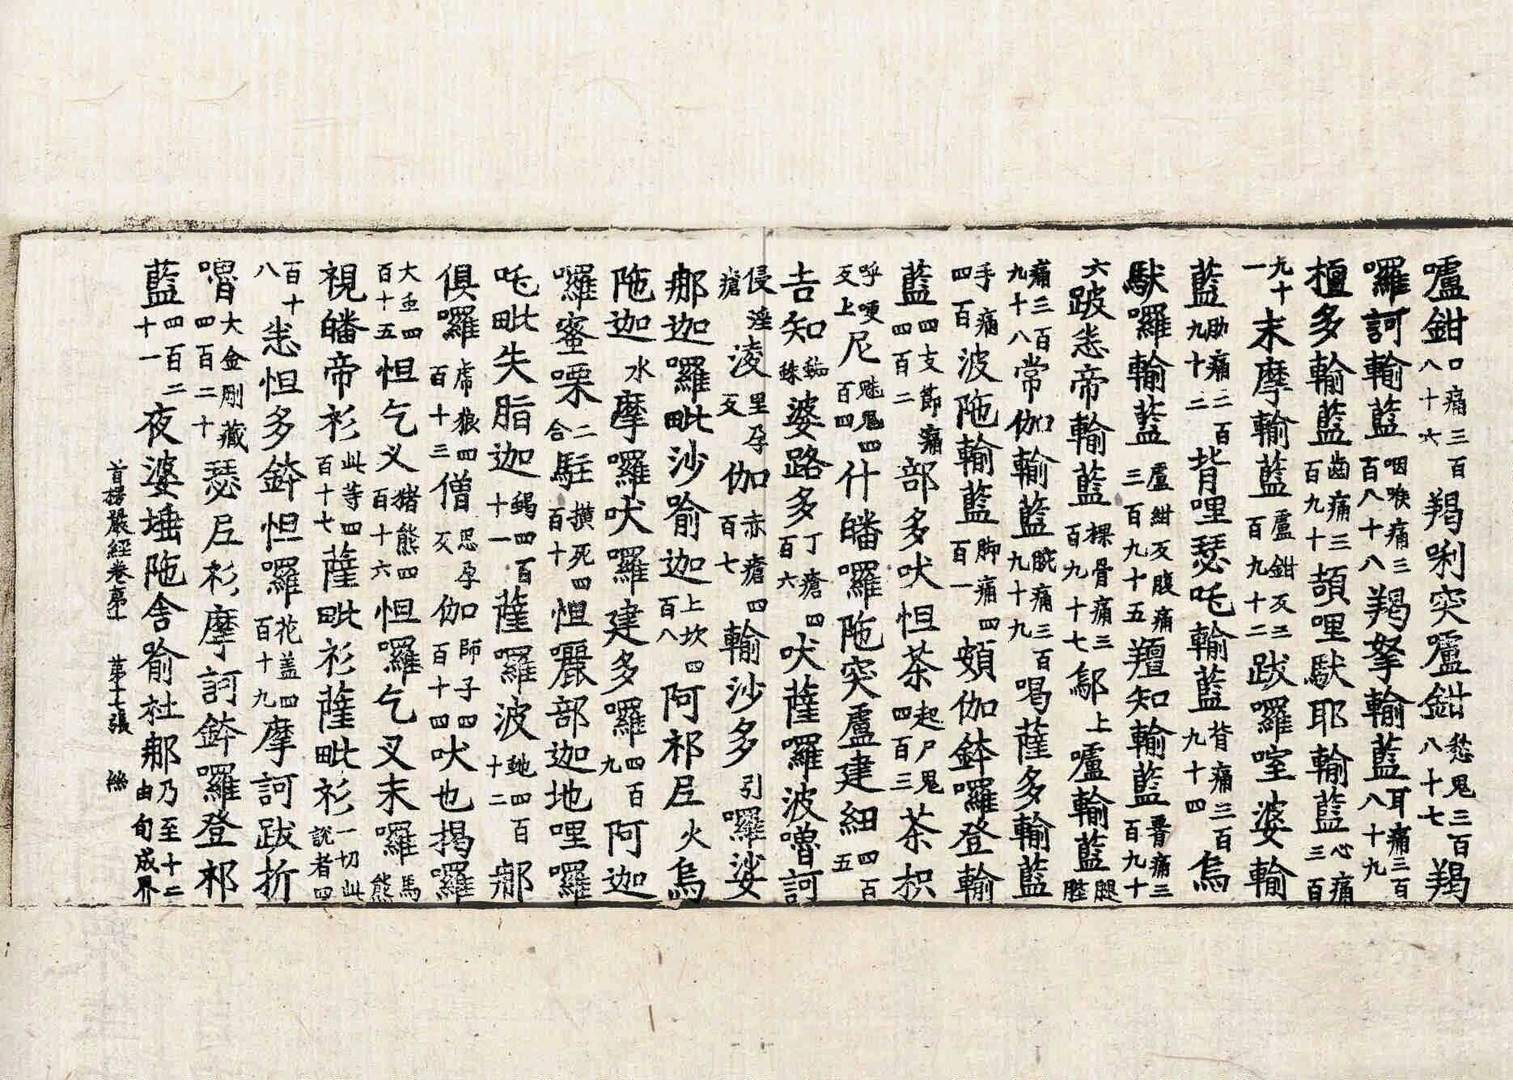 嚧鉗口痛三百八十六羯唎突嚧鉗愁鬼三百八十七羯
囉訶輸藍咽喉痛三百八十八羯拏輸藍耳痛三百八十九
檀多輸藍齒痛三百九十頡哩馱耶輸藍心痛三百
九十一末摩輸藍盧鉗反三百九十二跋囉室婆輸
藍肋痛三百九十三背哩瑟吒輸藍背痛三百九十四烏
馱囉輸藍盧紺反腹痛三百九十五羶知輸藍腰痛三百九十
六跛悉帝輸藍踝骨痛三百九十七鄔上嚧輸藍腿䏶
痛三百九十八常伽輸藍腕痛三百九十九喝薩多輸藍
手痛四百波陁輸藍脚痛四百一頞伽鉢囉登輸
藍四支節痛四百二部多吠怛茶起尸鬼四百三茶枳
呼哽反上尼魅鬼四百四什皤囉陁突盧建紐四百五
吉知蜘蛛婆路多丁瘡四百六吠薩囉波嚕訶
侵淫瘡淩里孕反伽赤瘡四百七輸沙多引囉娑
那迦囉毗沙喻迦上坎四百八阿祁尼火烏
陁迦水摩囉吠囉建多囉四百九阿迦
囉蜜㗚二合駐橫死四百十怛麗部迦地哩囉
吒毗失脂迦蝎四百十一薩囉波虵四百十二那
俱囉虎狼四百十三僧思孕反伽師子四百十四吠也揭囉
大虫四百十五怛乞叉猪熊四百十六怛囉乞叉末囉熊馬
視皤帝衫此等四百十七薩毗衫薩毗衫一切此說者四
百十八悉怛多鉢怛囉花盖四百十九摩訶跋折
嚕大金剛藏四百二十瑟尼衫摩訶鉢囉登祁
藍四百二十一夜婆埵陁舍喻社那乃至十二由旬成界
首楞嚴經卷第七　第十七張　絲